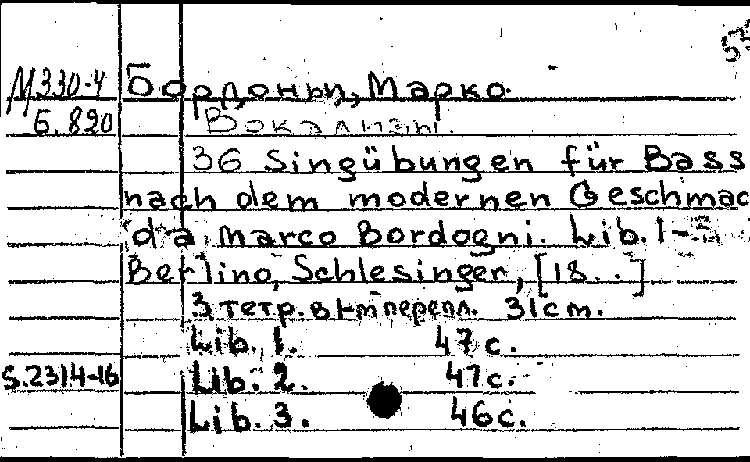 М330-4 Бордоньи, Марко.
Б.820 Вокализы.
36 Singübungen für Bass
nach dem modernen Geschmac
da Marco Bordogni. Lib. 1-
Berlino, Schlesinger, [18..]
3 тетр. в 1-м перепл. 31cm.
Lib. 1. 47 с.
S.2314-16 Lib. 2. 47 с.
Lib. 3. 46 с.